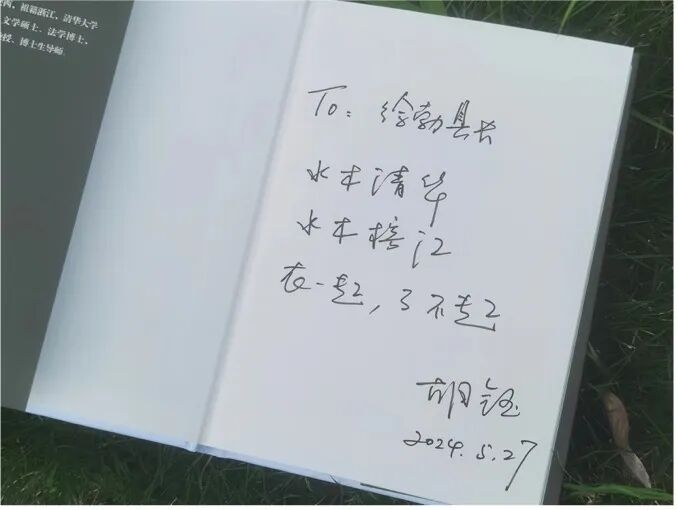 西，祖籍浙江，清华大学
文学硕士、法学博士，
授、博士生导师。
To：徐勃县长
水木清华
水木榕江
在一起，了不起
胡钰
2024.5.27